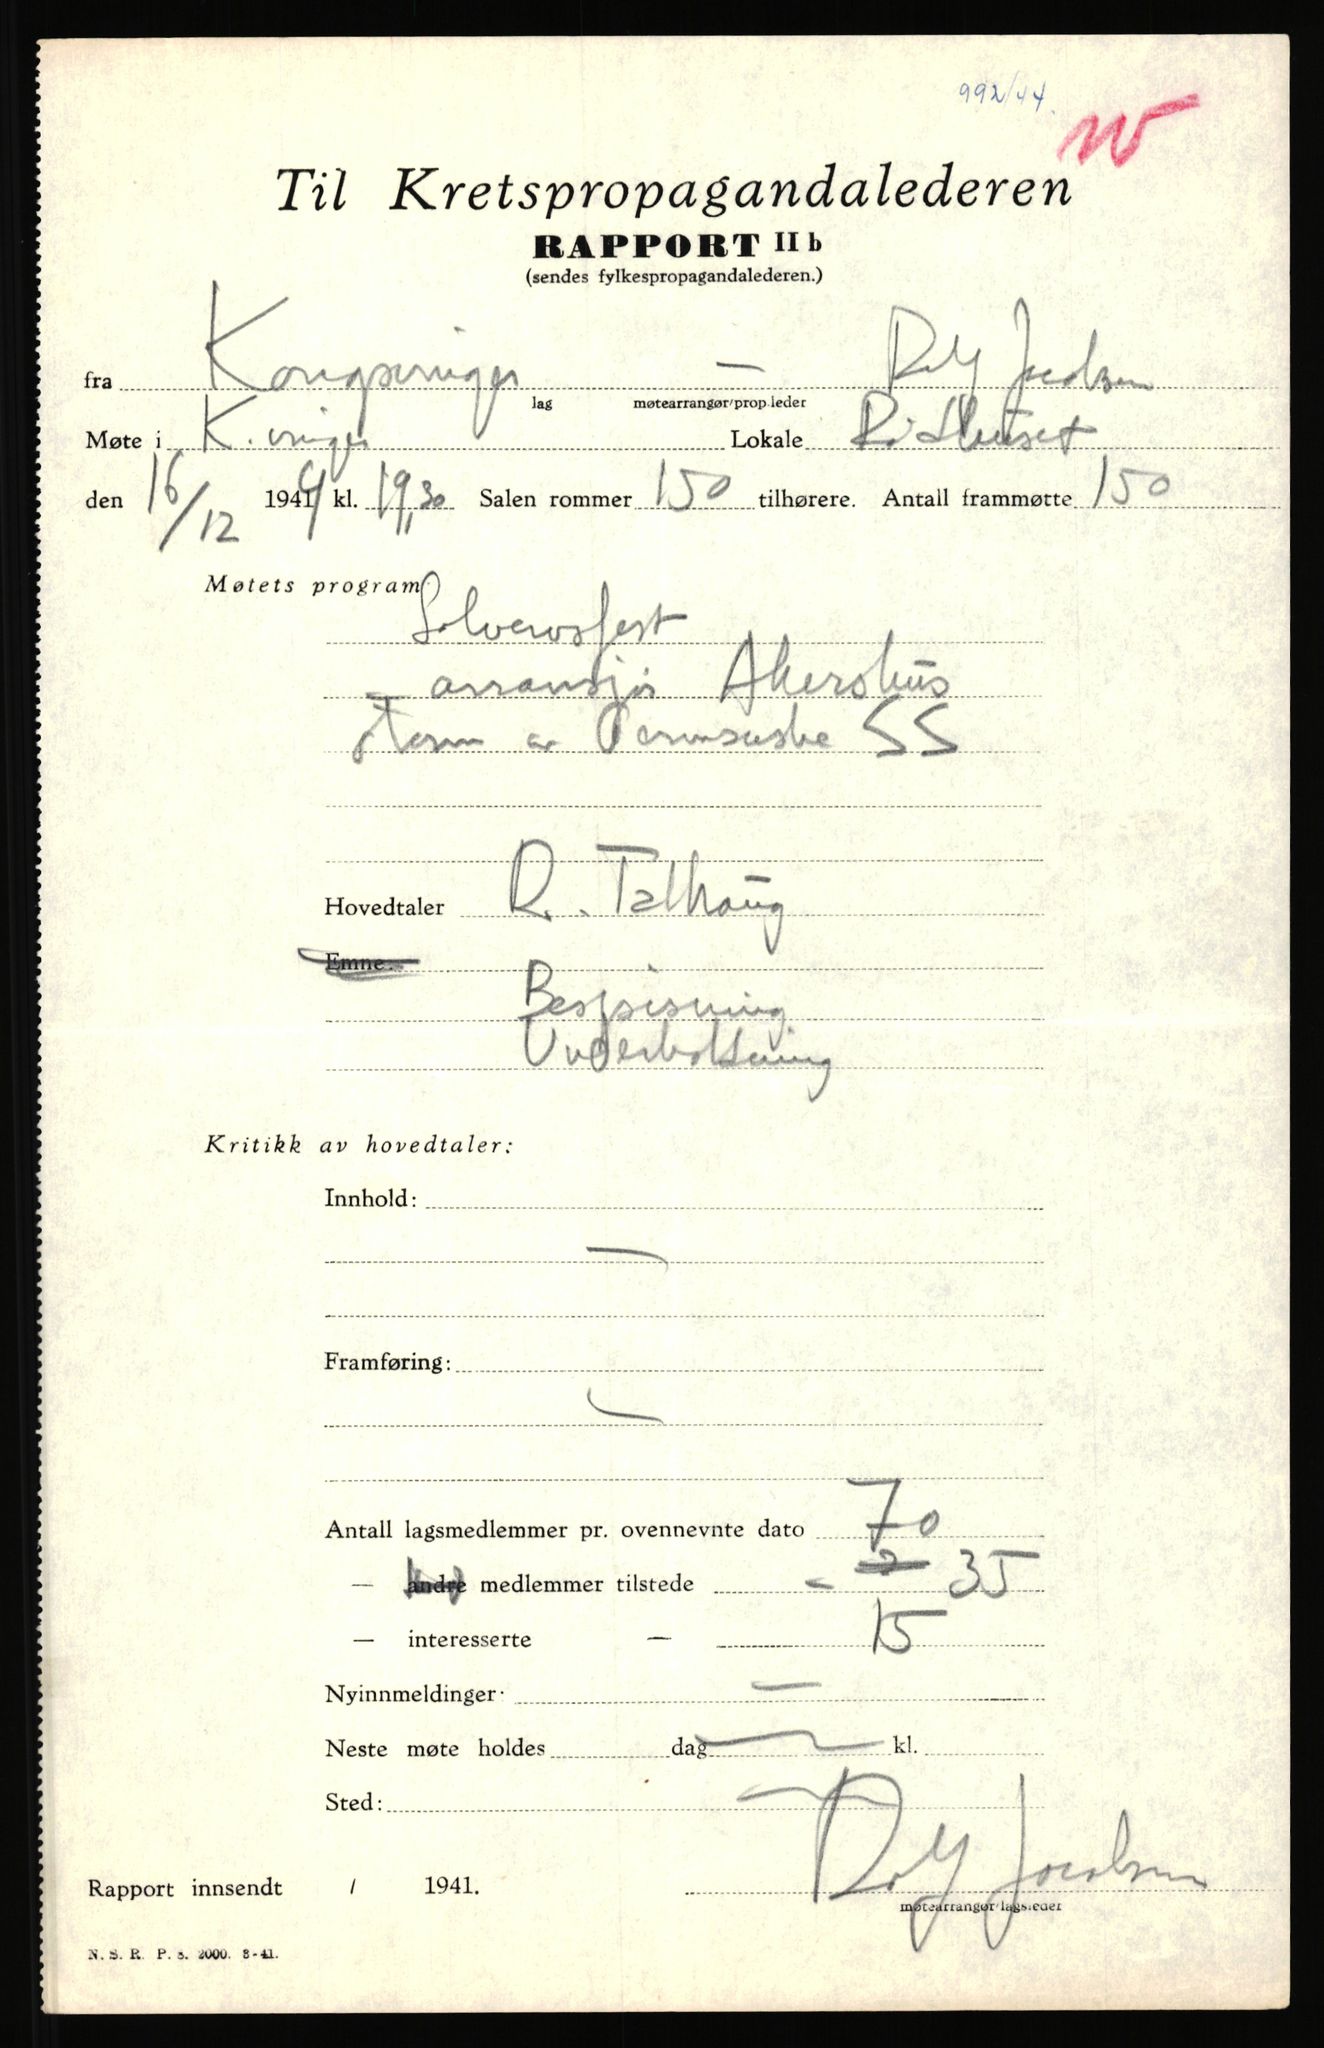 992/44.
Til Kretspropagandalederen
RAPPORT II b
(sendes fylkespropagandalederen.)
fra Kongsvinger lag — møtearrangør/prop.leder Rolf Jacobsen
Møte i K.vinger Lokale Rådhuset
den 16/12 1944 kl. 19,30 Salen rommer 150 tilhørere. Antall frammøtte 150
Møtets program:
Solvervsfest
— arransjør Akershus
Storm av Germanske SS
Hovedtaler R. Talhaug
Emne:
Bespisning
Underholdning
Kritikk av hovedtaler:
Innhold:
—
Framføring:
—
Antall lagsmedlemmer pr. ovennevnte dato 70
— andre medlemmer tilstede - 35
— interesserte — 15
Nyinnmeldinger: —
Neste møte holdes dag — kl.
Sted: —
Rapport innsendt / 1941. Rolf Jacobsen
møtearrangør/lagsleder
N. S. R. P. s. 2000. 8-41.